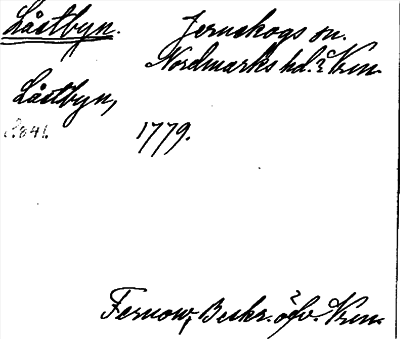 Låstbyn. Jernskogs sn.
Nordmarks hd. Vrm.
Låstbyn,
1779.
Fernow, Beskr. öfv. Vrm.